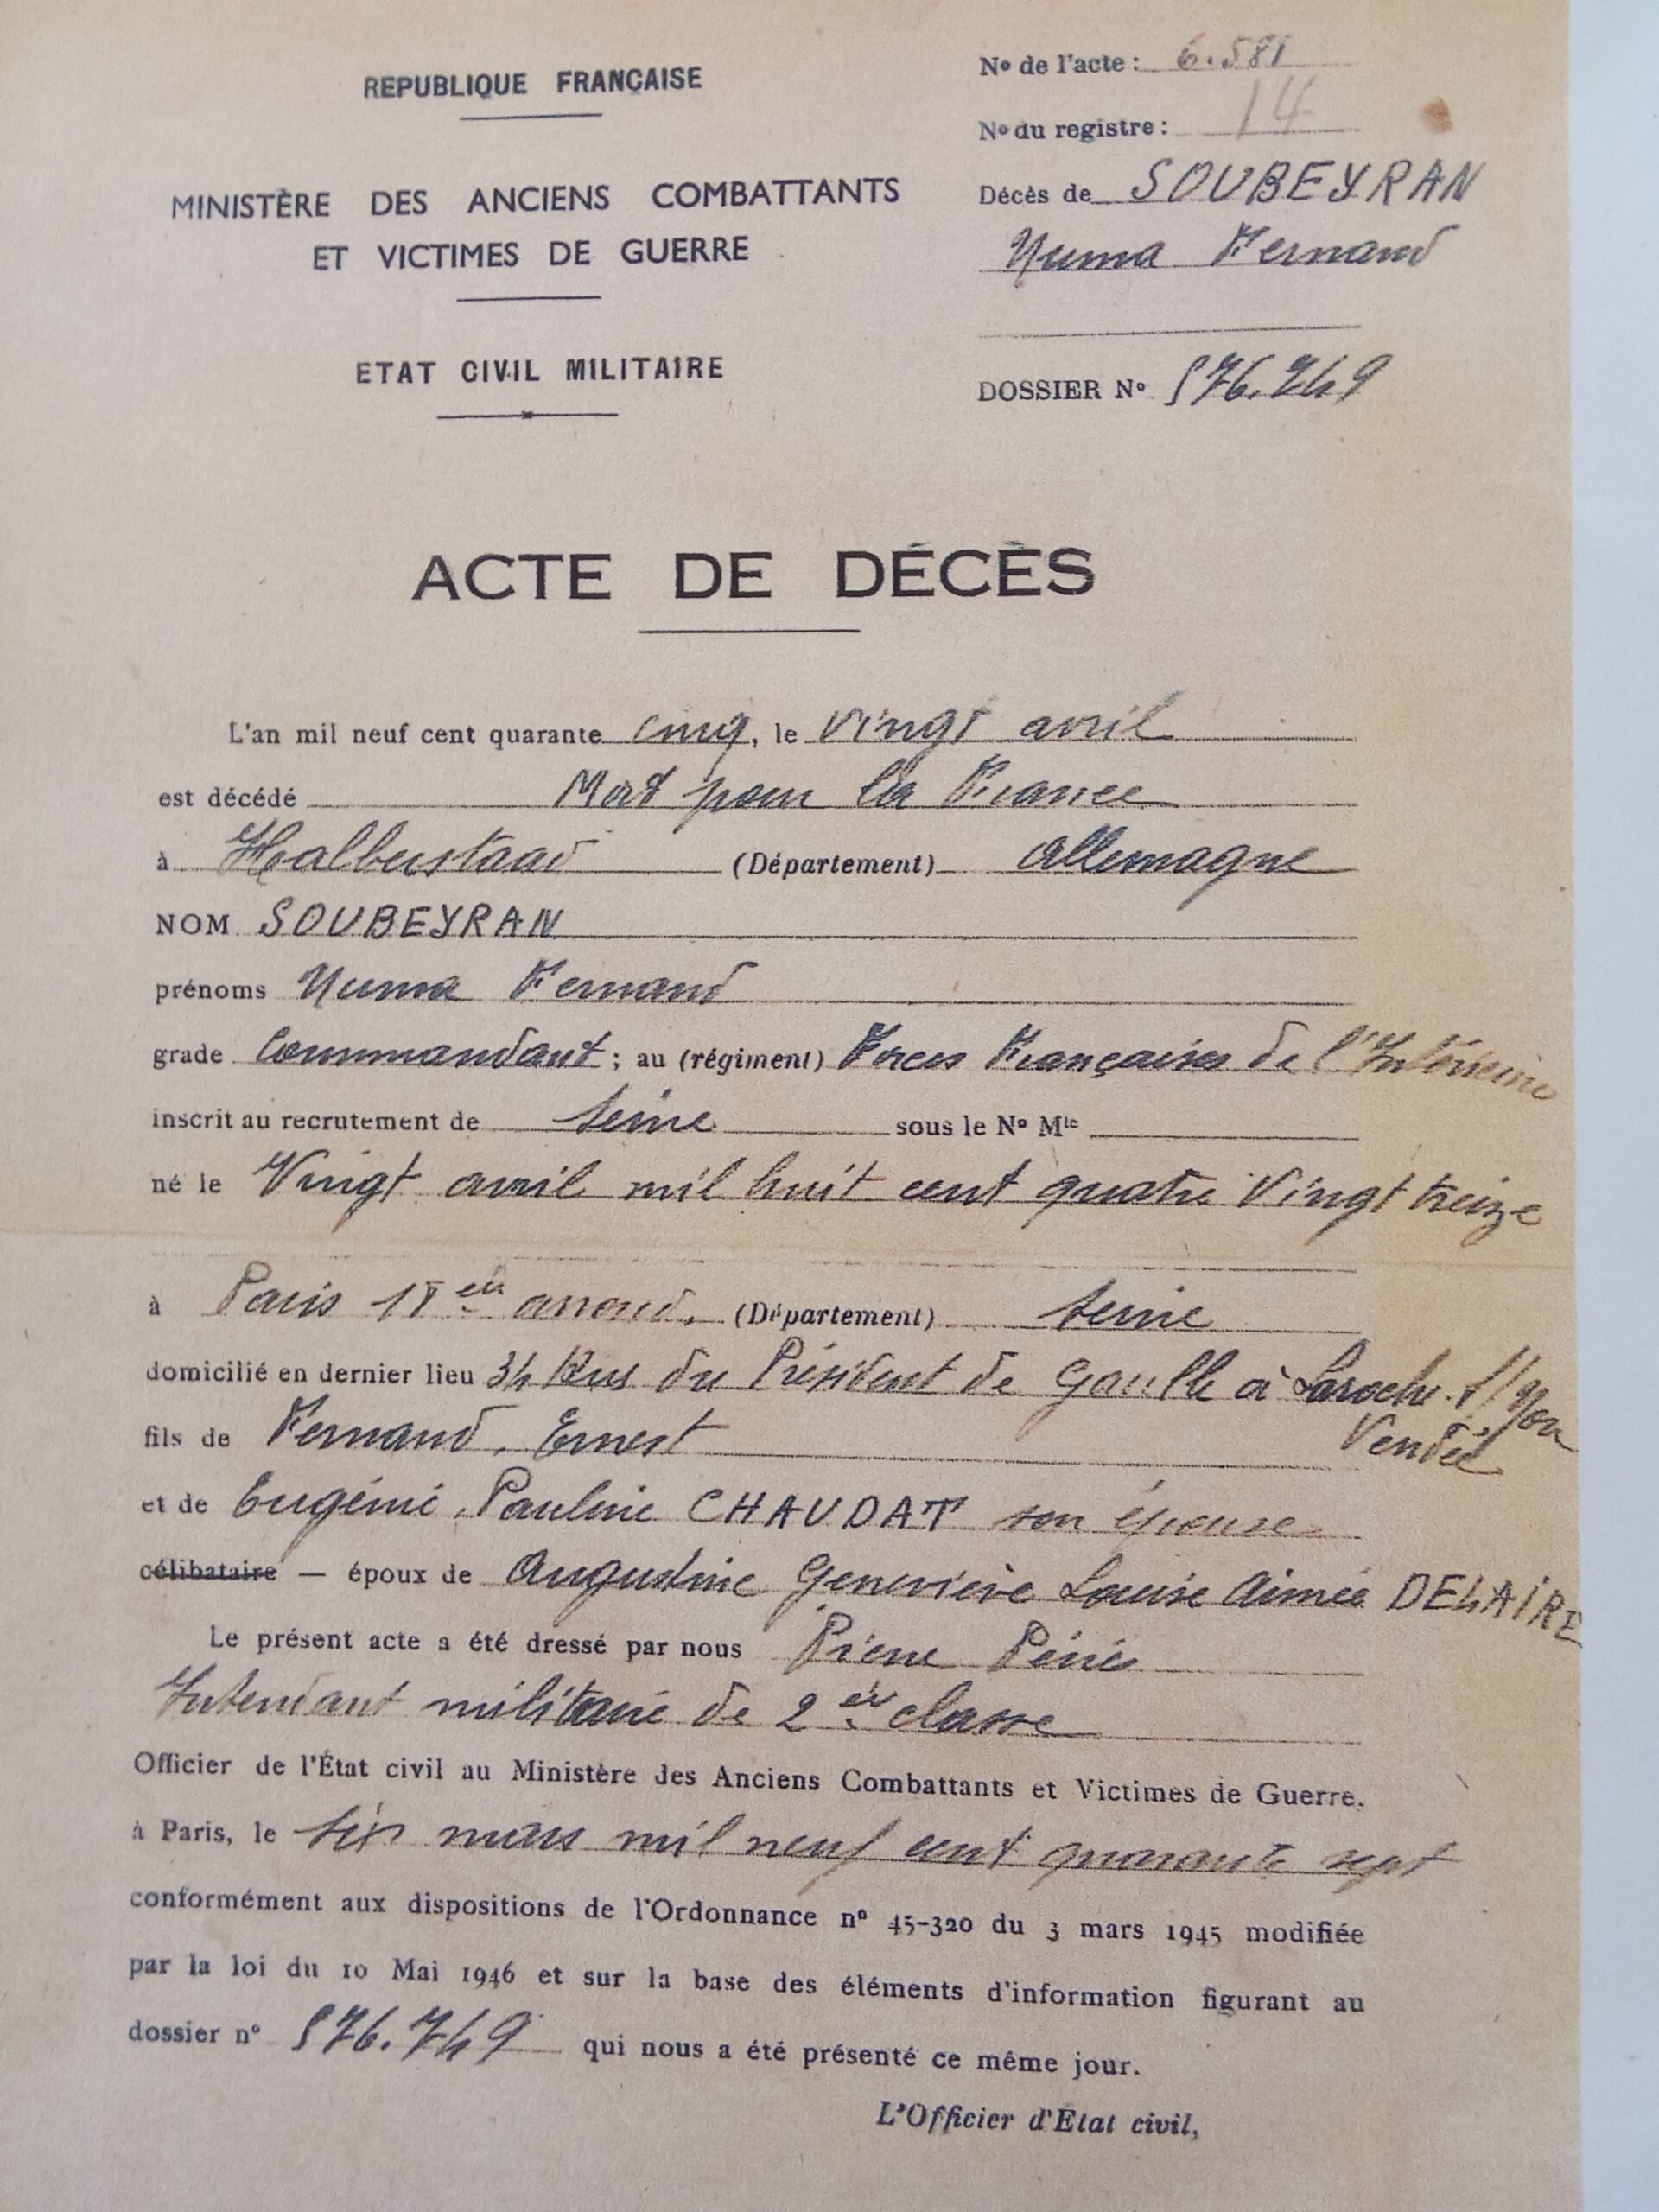 REPUBLIQUE FRANÇAISE
MINISTÈRE DES ANCIENS COMBATTANTS
ET VICTIMES DE GUERRE
ETAT CIVIL MILITAIRE
Nº de l'acte : 6.581
Nº du registre : 14
Décès de SOUBEYRAN
Numa Fernand
DOSSIER Nº 576.749
ACTE DE DÉCÈS
L'an mil neuf cent quarante cinq, le vingt avril
est décédé Mort pour la France
à Halberstaad (Département) Allemagne
NOM SOUBEYRAN
prénoms Numa Fernand
grade Commandant ; au (régiment) Forces Françaises de l'Intérieur
inscrit au recrutement de Seine sous le Nº Mle
né le Vingt avril mil huit cent quatre Vingt treize
à Paris 18 em arrond. (Département) Seine
domicilié en dernier lieu 34 Rue du Président de Gaulle à Laroche s/Yon
Vendée
fils de Fernand, Ernest
et de Eugénie, Pauline CHAUDAT son épouse
célibataire — époux de Augustine Geneviève Louise Aimée DELAIRE
Le présent acte a été dressé par nous Pierre Périé
Intendant militaire de 2 em classe
Officier de l'État civil au Ministère des Anciens Combattants et Victimes de Guerre.
à Paris, le six mars mil neuf cent quarante sept
conformément aux dispositions de l'Ordonnance nº 45-320 du 3 mars 1945 modifiée
par la loi du 10 Mai 1946 et sur la base des éléments d'information figurant au
dossier nº 576.749 qui nous a été présenté ce même jour.
L'Officier d'État civil,